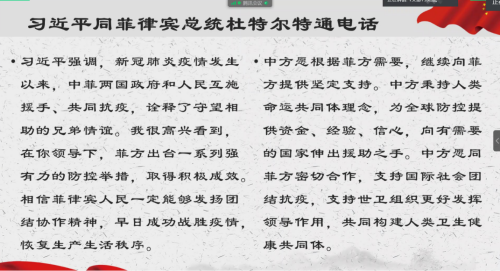 习近平同菲律宾总统杜特尔特通电话
• 习近平强调，新冠肺炎疫情发生
以来，中菲两国政府和人民互施
援手、共同抗疫，诠释了守望相
助的兄弟情谊。我很高兴看到，
在你领导下，菲方出台一系列强
有力的防控举措，取得积极成效。
相信菲律宾人民一定能够发扬团
结协作精神，早日成功战胜疫情，
恢复生产生活秩序。
• 中方愿根据菲方需要，继续向菲
方提供坚定支持。中方秉持人类
命运共同体理念，为全球防控提
供资金、经验、信心，向有需要
的国家伸出援助之手。中方愿同
菲方密切合作，支持国际社会团
结抗疫，支持世卫组织更好发挥
领导作用，共同构建人类卫生健
康共同体。